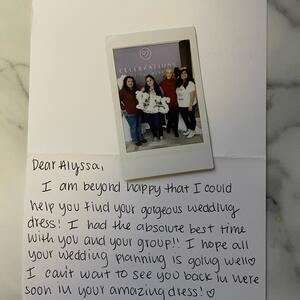 CELEBRATIONS
Dear Alyssa,
I am beyond happy that I could
help you find your gorgeous wedding
dress! I had the absolute best time
with you and your group!! I hope all
your wedding planning is going well♡
I can't wait to see you back in here
soon in your amazing dress! ♡